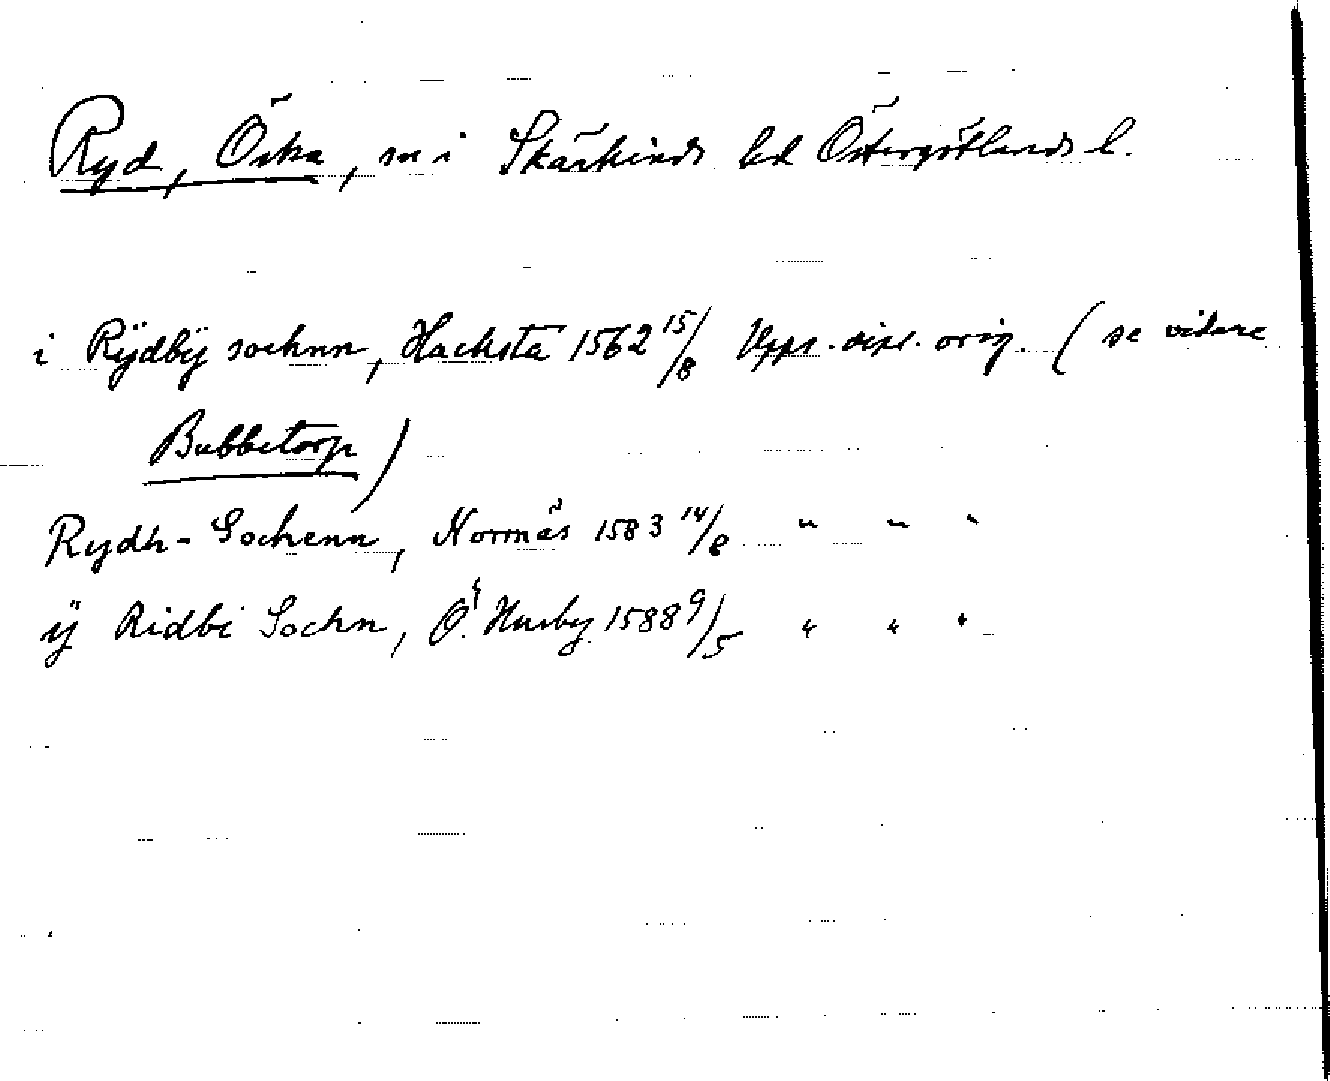 Ryd, Östra, sn i Skärkinds hd Östergötlands l.
i Rÿdbÿ sochnn, Hacksta 1562 15/8 Upps. dipl. orig. (se vidare
Bubbetorp)
Rydh-Sochenn, Normäs 1583 14/8 " " "
ÿ Ridbi Sochn, Ö. Husby 1588 9/5 " " "